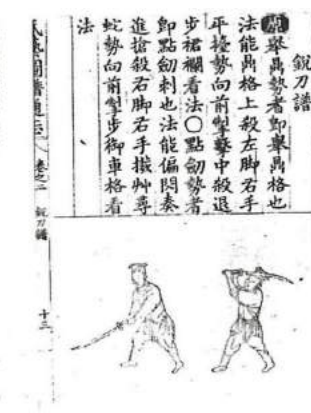 銳刀譜
舉鼎勢者即舉鼎格也
法能鼎格上殺左脚右手
平擡勢向前擊中殺退
步裙襴看法○點劒勢者
即點劒刺也法能偏閃奏
進搶殺右脚右手撥艸尋
蛇勢向前掣步御車格看
法
武藝圖譜通志
卷之二
銳刀譜
十三